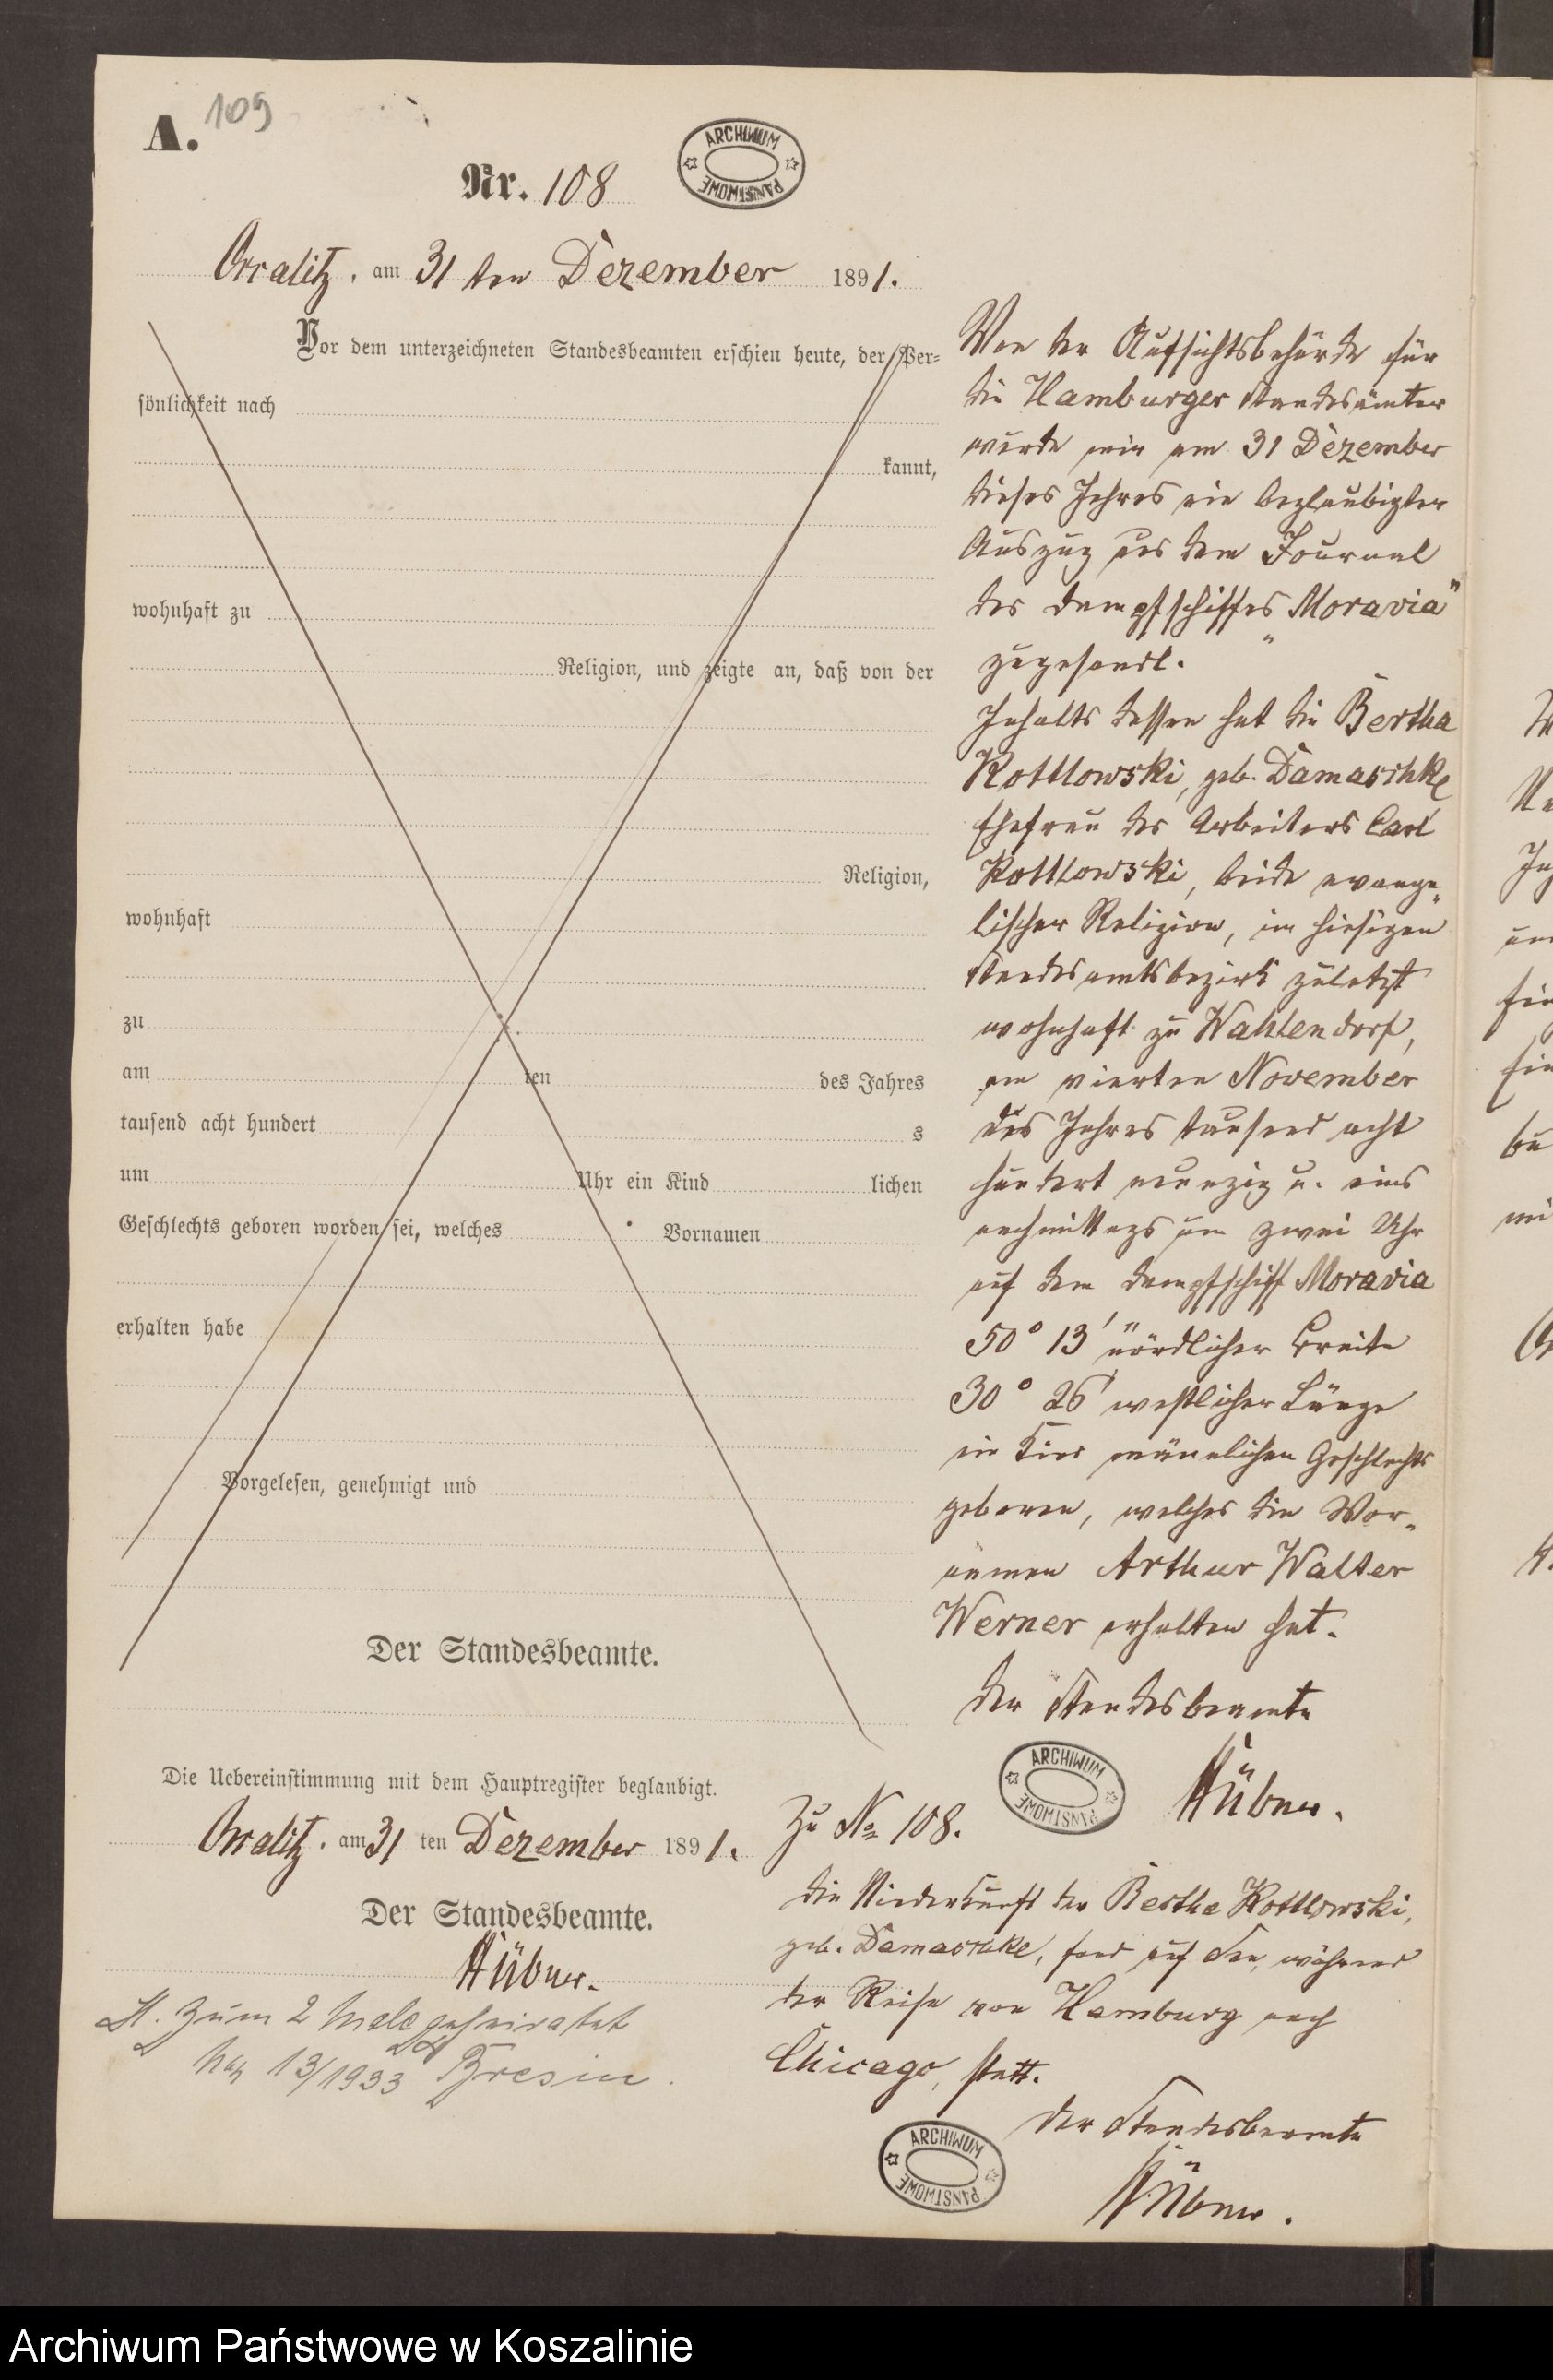 A. 109
Nr. 108
ARCHIWUM PAŃSTWOWE
Orralitz, am 31 ten Dezember 1891.
Vor dem unterzeichneten Standesbeamten erschien heute, der Per-
sönlichkeit nach
kannt,
wohnhaft zu
Religion, und zeigte an, daß von der
Religion,
wohnhaft
zu
am ten des Jahres
tausend acht hundert s
um Uhr ein Kind lichen
Geschlechts geboren worden sei, welches Vornamen
erhalten habe
Vorgelesen, genehmigt und
Der Standesbeamte.
Von der Aufsichtsbehörde für
die Hamburger Standesämter
wurde mir am 31 Dezember
dieses Jahres ein beglaubigter
Auszug aus dem Journal
des Dampfschiffes „Moravia"
zugesandt.
Inhalts dessen hat die Bertha
Kottlowski, geb. Damaschke,
Ehefrau des Arbeiters Carl
Kottlowski, beide evange-
lischer Religion, im hiesigen
Standesamtsbezirk zuletzt
wohnhaft zu Wahlendorf,
am vierten November
des Jahres tausend acht
hundert neunzig u. eins
nachmittags um zwei Uhr
auf dem Dampfschiff „Moravia"
50° 13' nördlicher Breite
30° 26' westlicher Länge
ein Kind männlichen Geschlechts
geboren, welches die Vor-
namen Arthur Walter
Werner erhalten hat.
Der Standesbeamte
Hübner.
ARCHIWUM PAŃSTWOWE
Die Uebereinstimmung mit dem Hauptregister beglaubigt.
Orralitz, am 31 ten Dezember 1891.
Der Standesbeamte.
Hübner.
St. zum 2 Male geheiratet
Nr 13/1933 StA Bresin.
Zu No 108.
Die Niederkunft der Bertha Kottlowski,
geb. Damaschke, fand auf See, während
der Reise von Hamburg nach
Chicago, statt.
Der Standesbeamte
Hübner.
ARCHIWUM PAŃSTWOWE
Archiwum Państwowe w Koszalinie